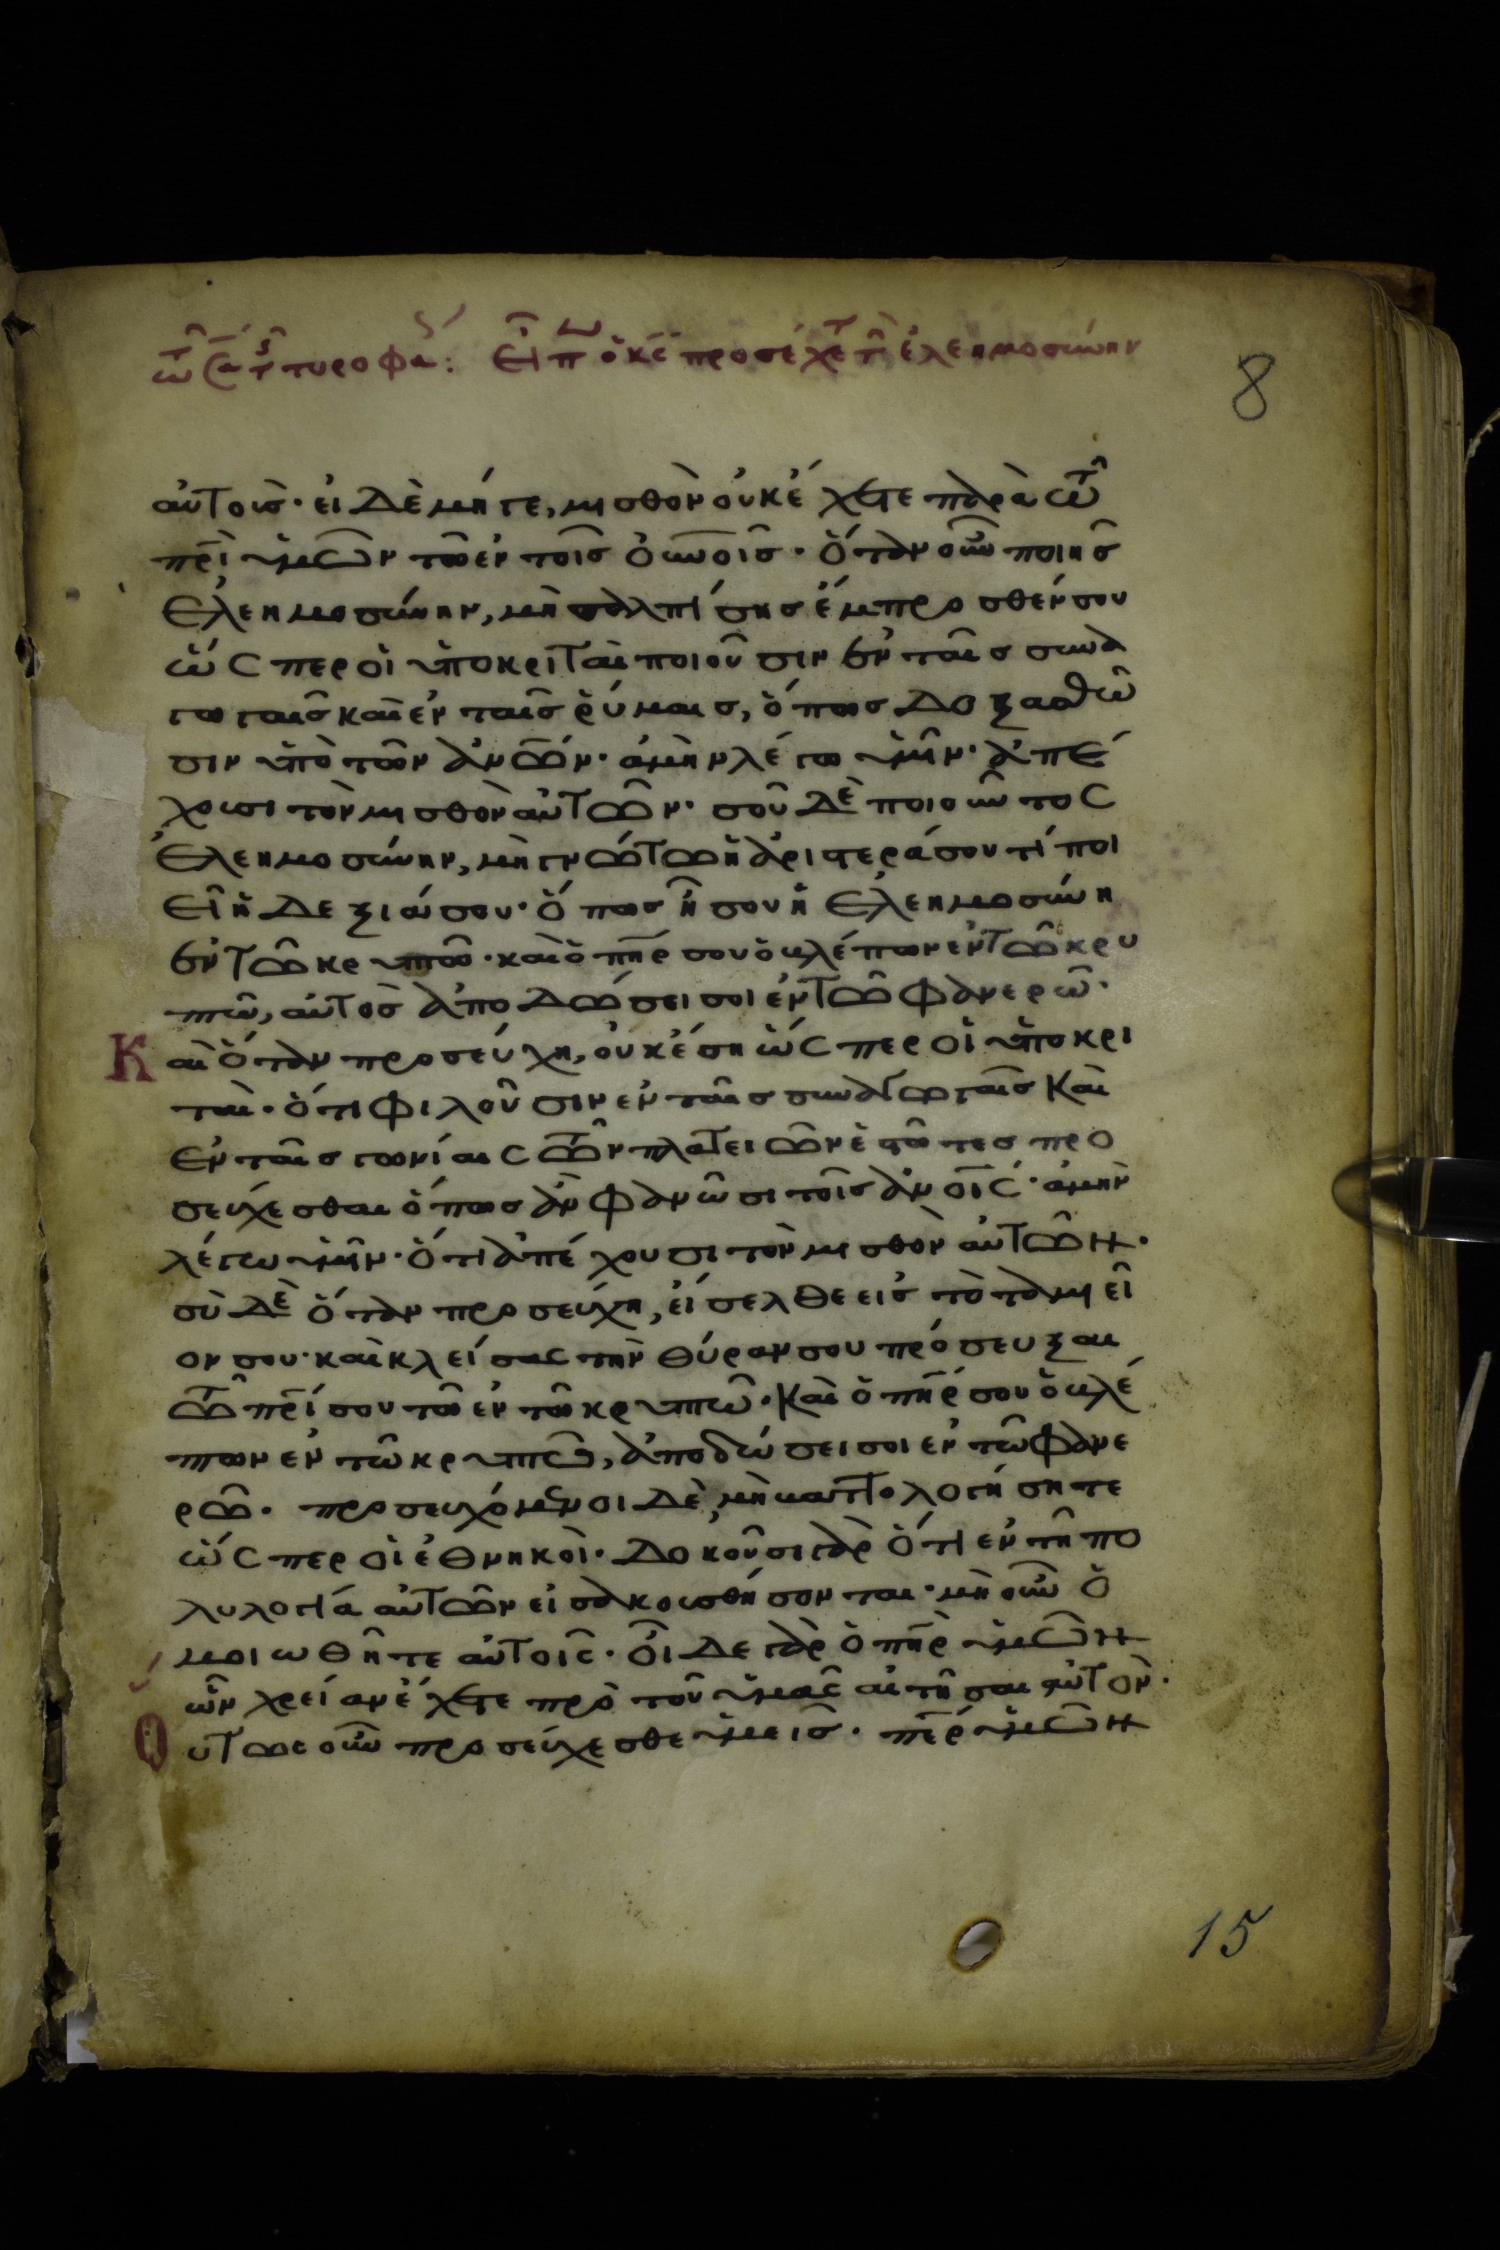 τῶ Σα τῆς τυροφά: Εἶπ ὁ κς προσέχετ τὴ ἐλεημοσύνην
8
αὐτοῖς· εἰ δὲ μήγε, μισθὸν οὐκ ἔχετε παρὰ τῶ
πρι ὑμῶν τῶ ἐν τοῖς οὐνοις· ὅταν οὖν ποιῆς
ἐλεημοσύνην, μὴ σαλπίσης ἔμπροσθέν σου
ὥσπερ οἱ ὑποκριταὶ ποιοῦσιν ἐν ταῖς συνα
γωγαῖς καὶ ἐν ταῖς ῥύμαις, ὅπως δοξασθῶ
σιν ὑπὸ τῶν ἀνων· ἀμὴν λέγω ὑμῖν· ἀπέ
χουσι τὸν μισθὸν αὐτῶν· σοῦ δὲ ποιοῦντος
ἐλεημοσύνην, μὴ γνώτω ἡ ἀριστερά σου τί ποι
εῖ ἡ δεξιά σου· ὅπως ἦ σου ἡ ἐλεημοσύνη
ἐν τῶ κρυπτῶ· καὶ ὁ πηρ σου ὁ βλέπων ἐν τῶ κρυ
πτῶ, αὐτὸς ἀποδώσει σοι ἐν τῶ φανερῶ·
Καὶ ὅταν προσεύχη, οὐκ ἔση ὥσπερ οἱ ὑποκρι
ταὶ· ὅτι φιλοῦσιν ἐν ταῖς συναγωγαῖς καὶ
ἐν ταῖς γωνίαις τῶν πλατειῶν ἑστῶτες προ
σεύχεσθαι ὅπως ἂν φανῶσι τοῖς ἀνοις· ἀμὴν
λέγω ὑμῖν· ὅτι ἀπέχουσι τὸν μισθὸν αὐτῶν·
σὺ δὲ ὅταν προσεύχη, εἴσελθε εἰς τὸ ταμιεῖ
ον σου· καὶ κλείσας τὴν θύραν σου πρόσευξαι
τῶ πρι σου τῶ ἐν τῶ κρυπτῶ· καὶ ὁ πηρ σου ὁ βλέ
πων ἐν τῶ κρυπτῶ, ἀποδώσει σοι ἐν τῶ φανε
ρῶ· προσευχόμενοι δὲ, μὴ βαττολογήσητε
ὥσπερ οἱ ἐθνηκοὶ· δοκοῦσι γὰρ ὅτι ἐν τῆ πο
λυλογία αὐτῶν εἰσακουσθήσονται· μὴ οὖν ὁ
μοιωθῆτε αὐτοῖς· οἶδε γὰρ ὁ πηρ ὑμῶν
ὧν χρείαν ἔχετε πρὸ τοῦ ὑμᾶς αἰτῆσαι αὐτὸν·
Οὕτως οὖν προσεύχεσθε ὑμεῖς· περ ἡμῶν
15